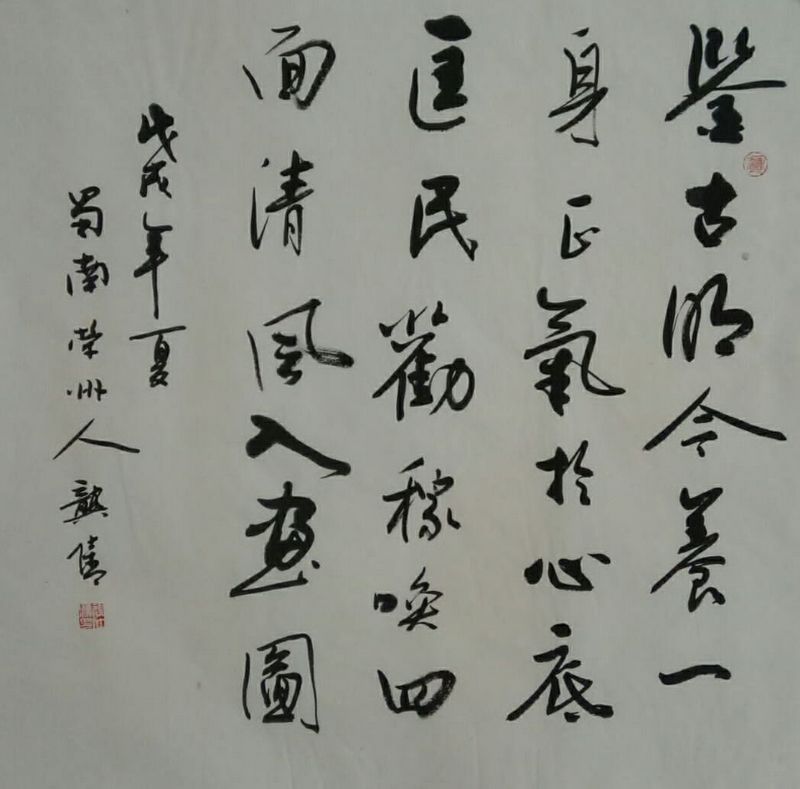 鑒古明今養一
身正氣於心底
匡民勸稼喚四
面清風入畫圖
戊戌年夏
蜀南榮州人龔倩